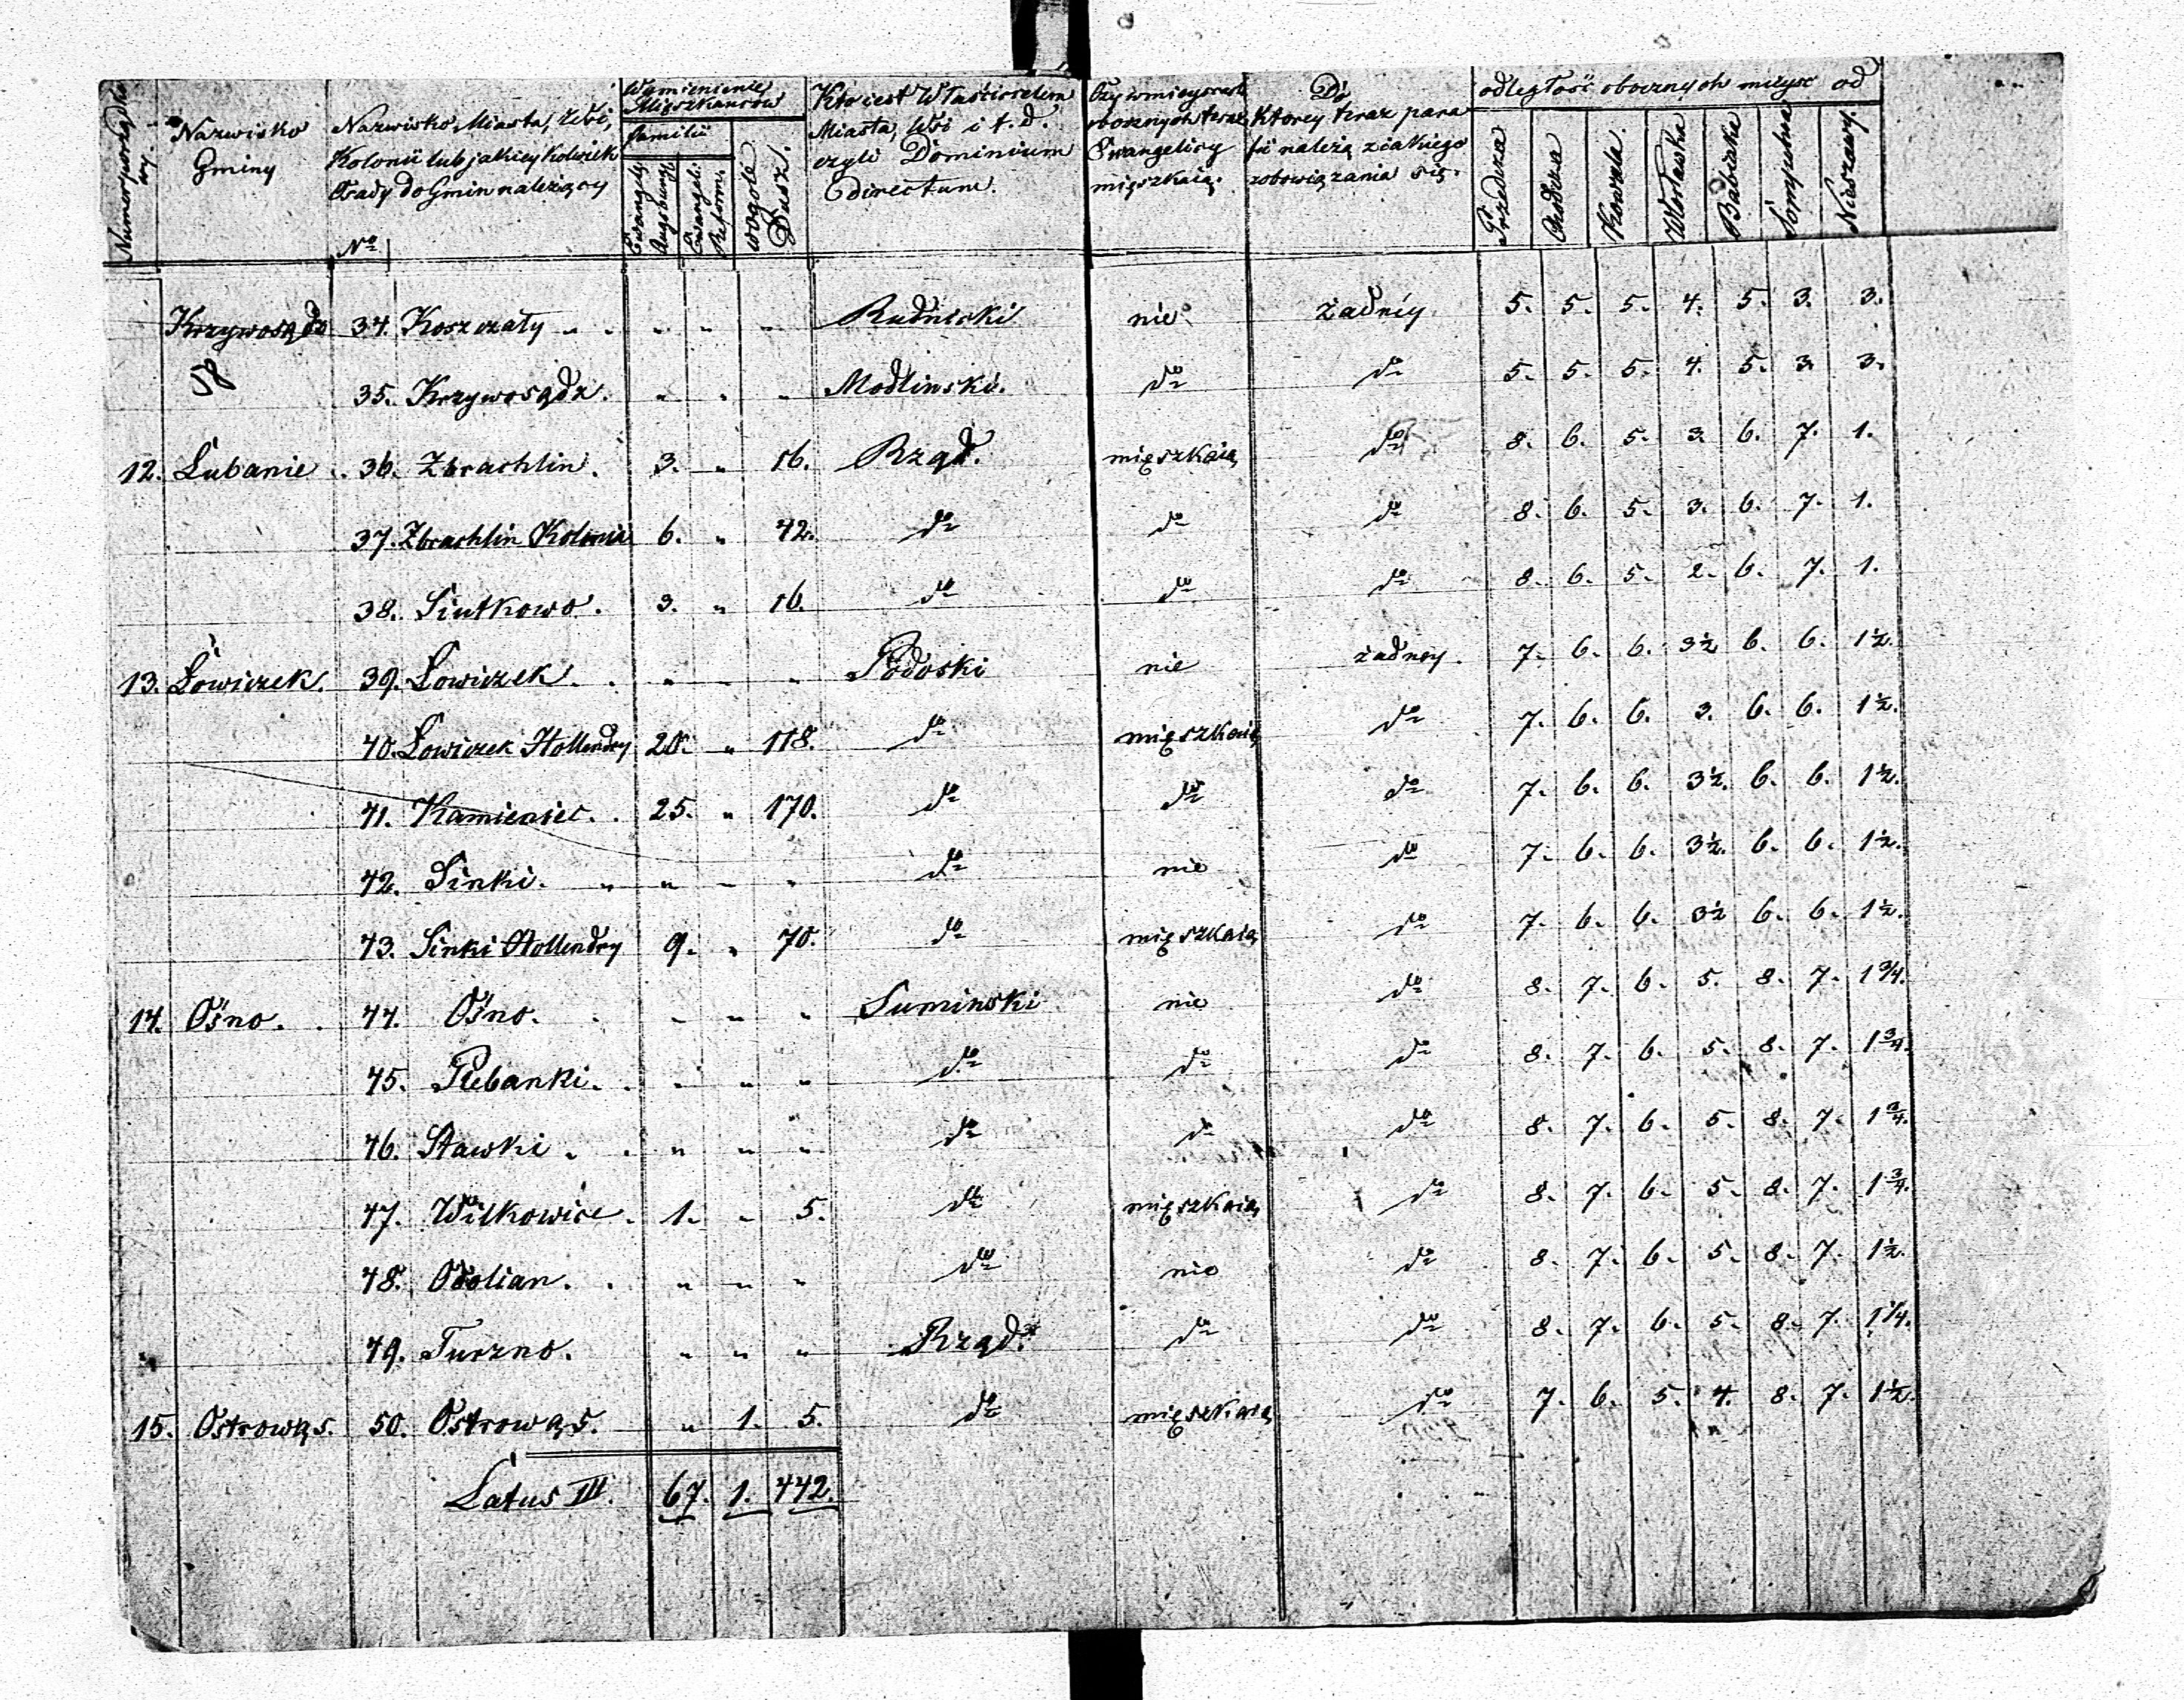 Numer porządkowy.
Nazwisko Gminy
Nazwisko Miasta, Wsi, Kolonii lub jakiey kolwiek Osady do Gmin należący
No
Wymienienie Mięszkańcow
familii
Ewangely: Augsburgs:
Ewangeli: Reform:
wogóle Dusz.
Kto iest Właścicielem Miasta, Wsi i t. d. czyli Dominium directum.
Czy w mieyscach obocznych teraz Ewangelicy mięszkaią.
Do ktorey teraz parafii należą z iakiego zobowiązania się.
odległość obocznych mieysc od
Przedcza
Chodcza
Kowala.
Włocławka
Babiaka
Sompolna
Nieszawy.
Krzywosądz 34. Koszczały " " " Rudnicki nie żadnéy 5. 5. 5. 4. 5. 3. 3.
58 35. Krzywosądz. " " " Modlinski. do do 5. 5. 5. 4. 5. 3. 3.
12. Lubanie 36. Zbrachlin. 3. " 16. Rząd. mięszkaią do 8. 6. 5. 3. 6. 7. 1.
37. Zbrachlin Kolonia 6. " 42. do do do 8. 6. 5. 3. 6. 7. 1.
38. Siutkowo. 3. " 16. do do do 8. 6. 5. 2. 6. 7. 1.
13. Łowiczek. 39. Łowiczek. " " " Podoski nie żadney. 7. 6. 6. 3½ 6. 6. 1½.
40. Łowiczek Hollendry 20. " 118. do mięszkaią do 7. 6. 6. 3. 6. 6. 1½.
41. Kamieniec. 25. " 170. do do do 7. 6. 6. 3½. 6. 6. 1½.
42. Sinki. " " " do nie do 7. 6. 6. 3½. 6. 6. 1½.
43. Sinki Hollendry 9. " 70. do mięszkaią do 7. 6. 6. 3½ 6. 6. 1½.
14. Ośno. 44. Ośno. " " " Suminski nie do 8. 7. 6. 5. 8. 7. 1¾.
45. Plebanki. " " " do do do 8. 7. 6. 5. 8. 7. 1¾.
46. Stawki. " " " do do do 8. 7. 6. 5. 8. 7. 1¾.
47. Wilkowice. 1. " 5. do mięszkaią do 8. 7. 6. 5. 8. 7. 1¾.
48. Odolian. " " " do nie do 8. 7. 6. 5. 8. 7. 1½.
49. Turzno. " " " Rząd. do do 8. 7. 6. 5. 8. 7. 1¼.
15. Ostrowąs. 50. Ostrowąs. " 1. 5. do mięszkaią do 7. 6. 5. 4. 8. 7. 1½.
Latus III. 67. 1. 442.